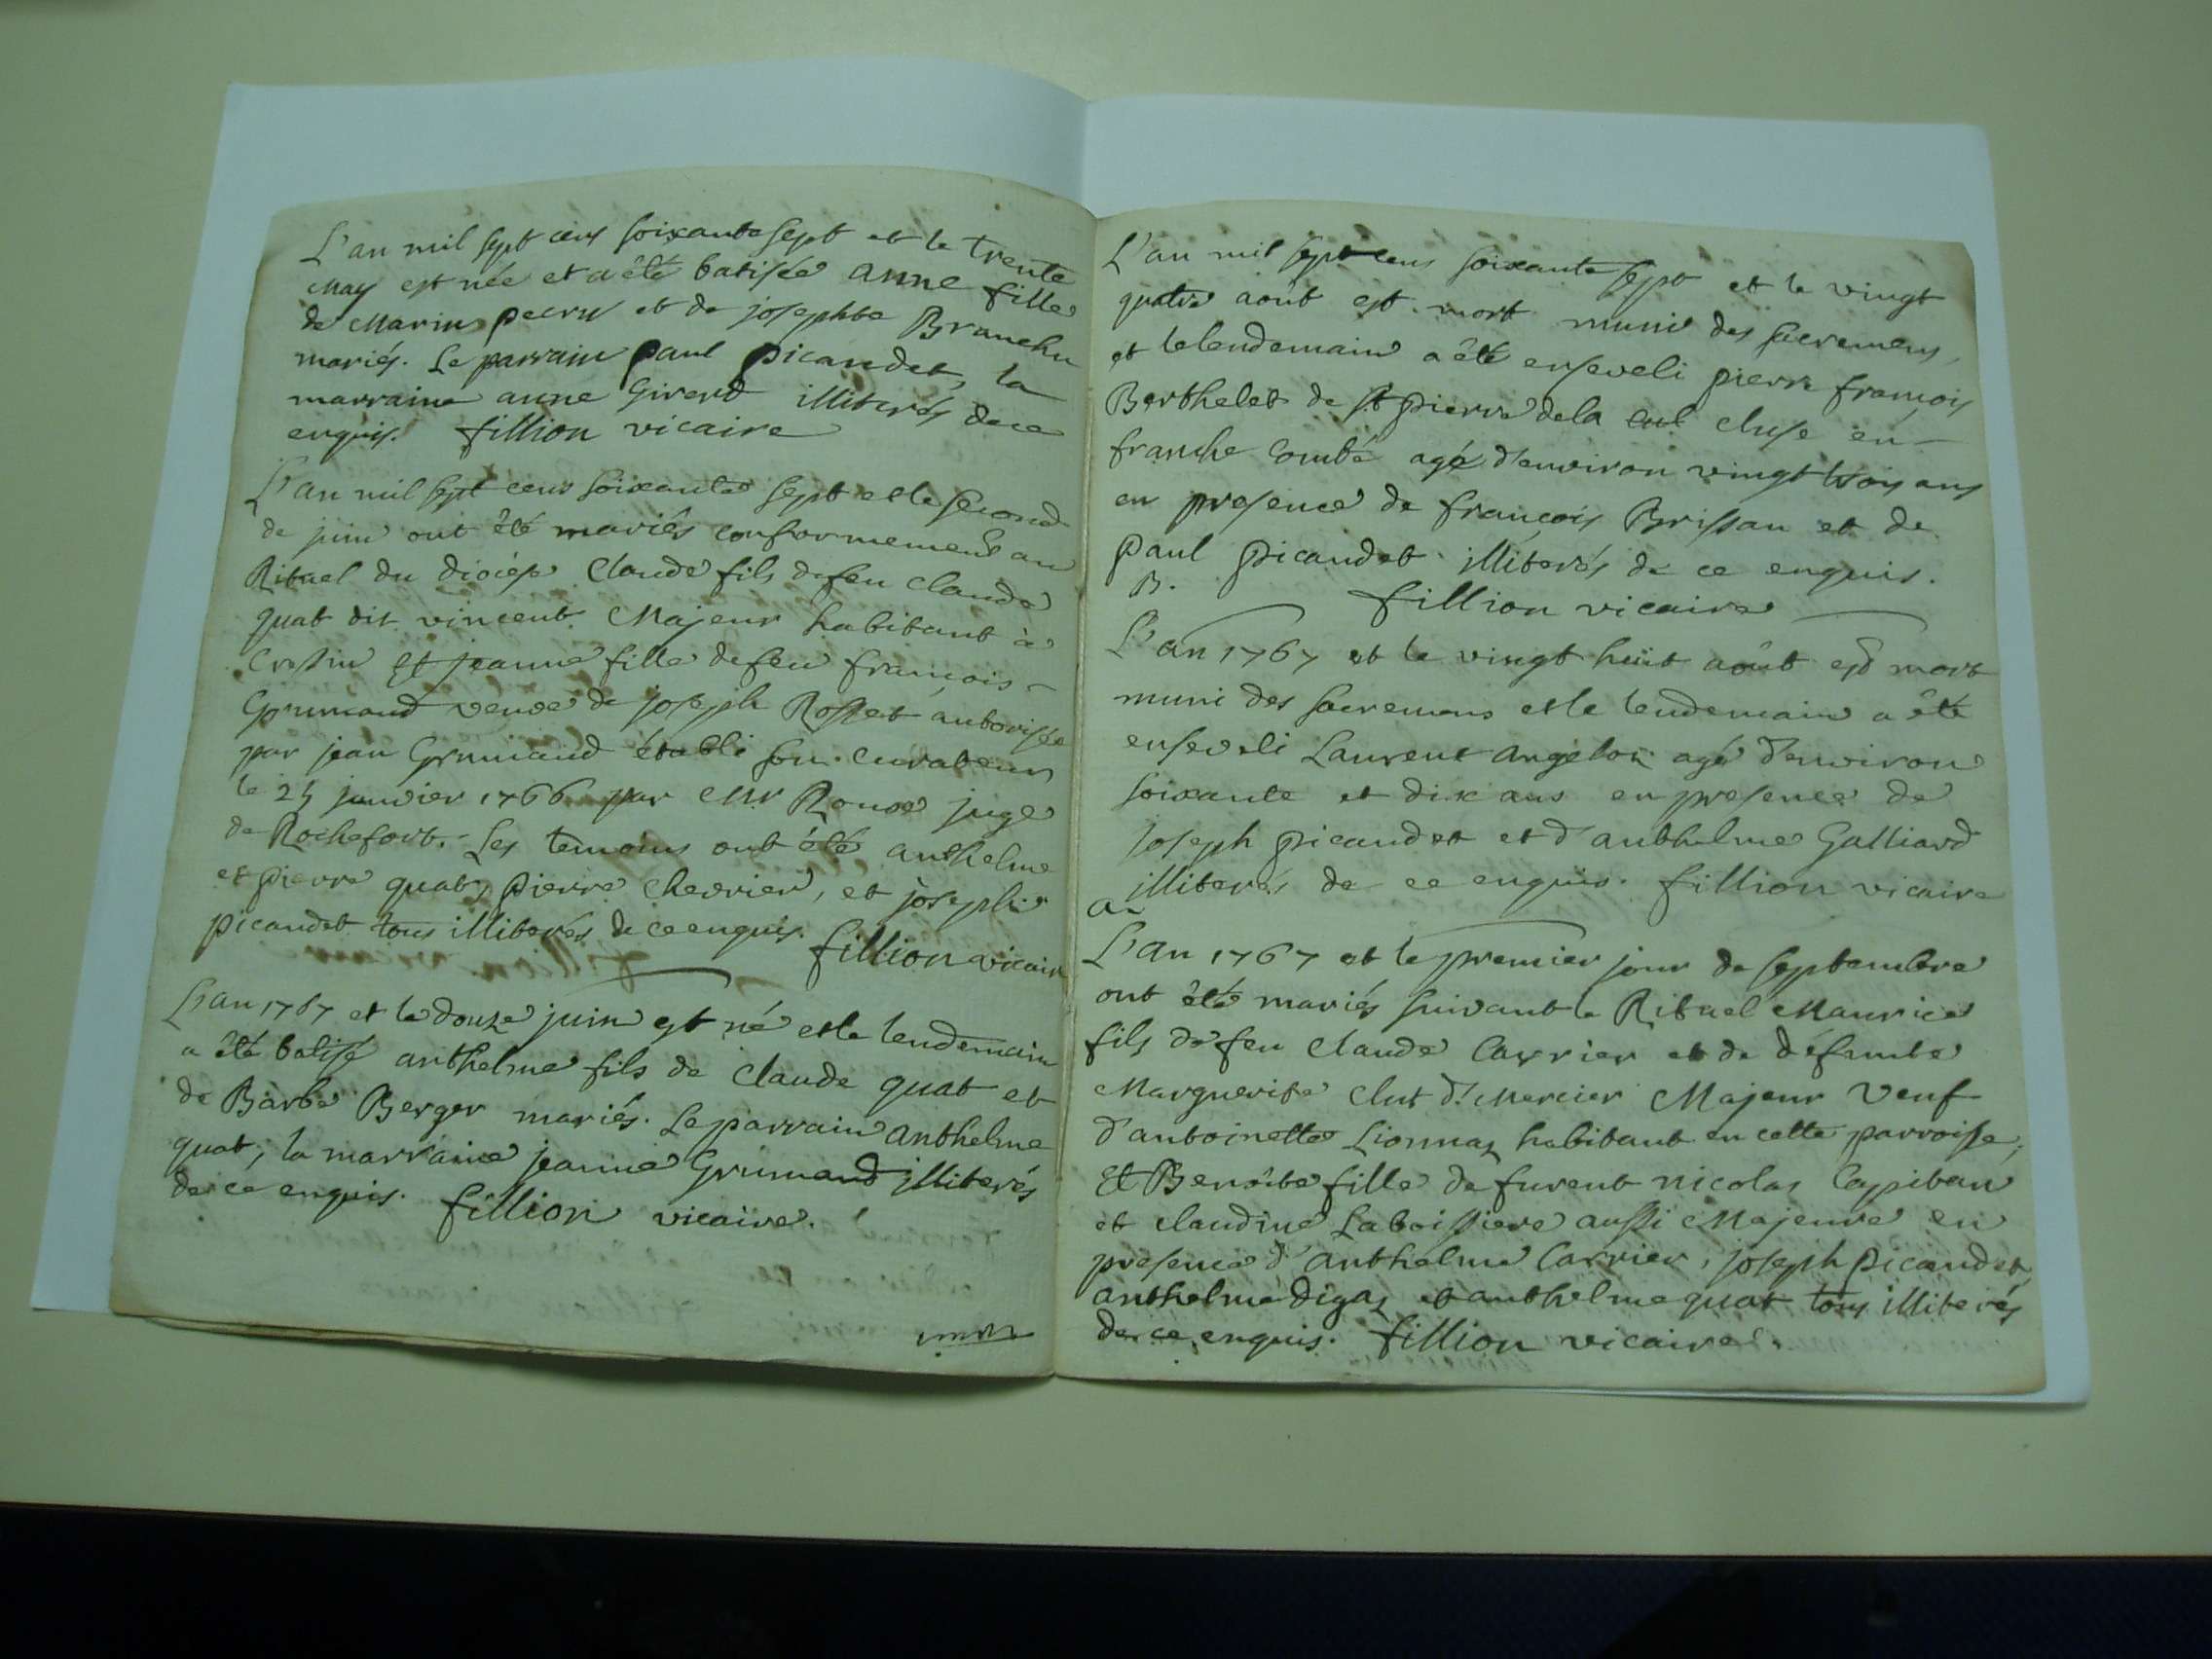 L'an mil sept cens soixante sept et le trente
May est née et a été batisée anne fille
de Marin pecru et de josephte Branchu
mariés. Le parrain paul picandet, la
marraine anne Girerd illiterés de ce
enquis. fillion vicaire
L'an mil sept cens soixante sept et le second
de juin ont été mariés conformement au
Rituel du diocése Claude fils de feu Claude
quat dit vincent Majeur habitant à
Cressin Et jeanne fille de feu françois
Grumaud veuve de joseph Rosset authorisée
par jean Grumaud établi son curateur
le 25 janvier 1766 par Mr Rouse juge
de Rochefort. Les temoins ont été anthelme
et pierre quat, pierre Chevrier, et joseph
picandet tous illiterés de ce enquis.
fillion vicaire
L'an 1767 et le douze juin est né et le lendemain
a été batisé anthelme fils de Claude quat et
de Barbe Berger mariés. Le parrain anthelme
quat, la marraine jeanne Grumaud illiterés
de ce enquis. fillion vicaire.
L'an mil sept cens soixante sept et le vingt
quatre août est mort muni des sacremens,
et le lendemain a été enseveli pierre françois
Berthelet de st pierre de la cul cluse en
franche Comté agé d'environ vingt trois ans
en presence de françois Brissau et de
paul picandet illiterés de ce enquis.
B. fillion vicaire
L'an 1767 et le vingt huit août est mort
muni des sacremens et le lendemain a été
enseveli Laurent angelot agé d'environ
soixante et dix ans en presence de
joseph picandet et d'anthelme Galliard
illiterés de ce enquis. fillion vicaire
a
L'an 1767 et le premier jour de septembre
ont été mariés suivant le Rituel Maurice
fils de feu Claude Carrier et de défunte
Marguerite Clut d. Mercier Majeur Veuf
d'antoinette Lionnaz habitant en cette parroisse,
Et Benoite fille de furent nicolas Capitan
et claudine Laboissiere aussi Majeure en
presence d'anthelme Carrier, joseph picandet,
anthelme digaz et anthelme quat tous illiterés
de ce enquis. fillion vicaire.